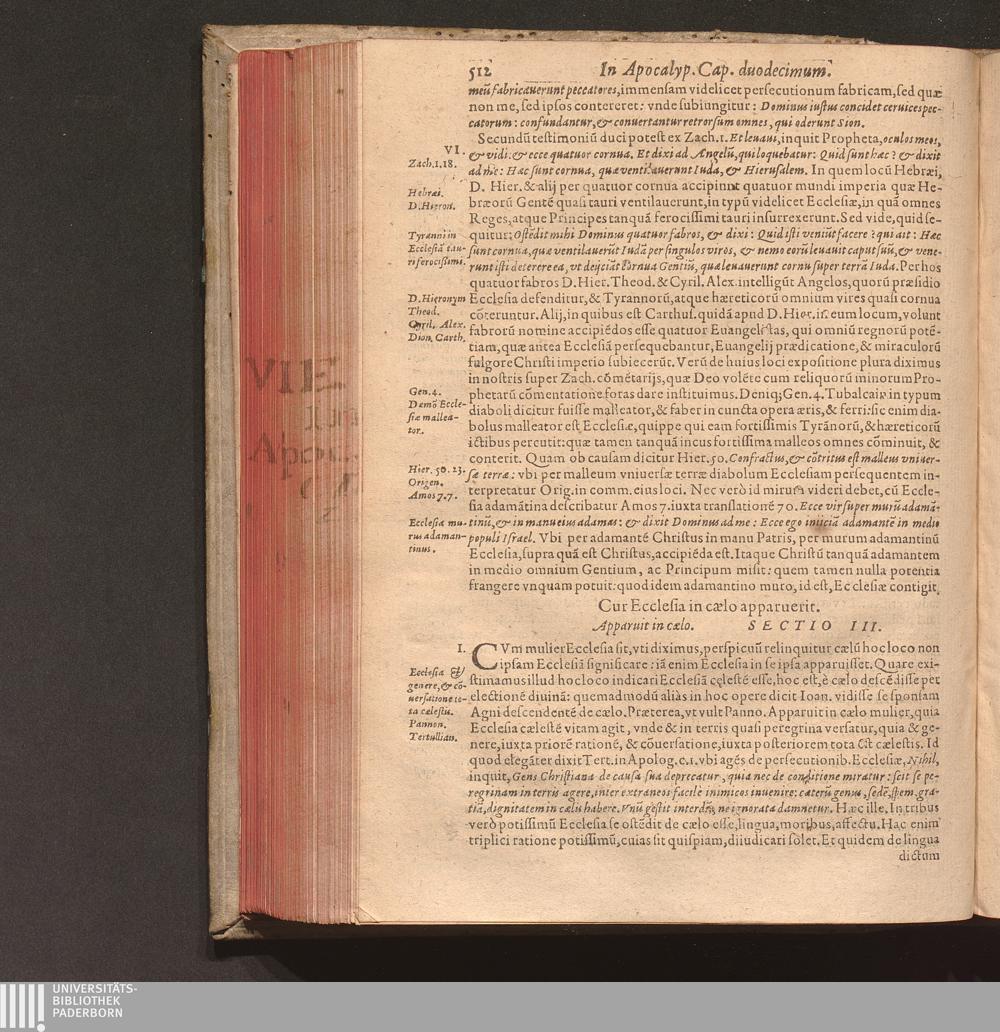 512 In Apocalyp. Cap. duodecimum.
meũ fabricauerunt peccatores, immensam videlicet persecutionum fabricam, sed quæ
non me, sed ipsos contereret: vnde subiungitur: Dominus iustus concidet ceruices pec-
catorum: confundantur, & conuertantur retrorsum omnes, qui oderunt Sion.
VI.
Zach.1.18.
Hebræi.
D. Hieron.
Tyranni in
Ecclesiã tau-
ri ferocissimi.
D. Hieronym
Theod.
Cyril. Alex.
Dion. Carth.
Gen. 4.
Dæmõ Eccle-
siæ mallea-
tor.
Hier. 50. 23.
Origen.
Amos 7.7.
Ecclesiæ mu-
rus adaman-
tinus.
Secundũ testimoniũ duci potest ex Zach.1. Et leuaui, inquit Propheta, oculos meos,
& vidi: & ecce quatuor cornua. Et dixi ad Angelũ, qui loquebatur: Quid sunt hæc? & dixit
ad me: Hæc sunt cornua, quæ ventilauerunt Iuda, & Hierusalem. In quem locũ Hebræi,
D. Hier. & alij per quatuor cornua accipiunt quatuor mundi imperia quæ He-
bræorũ Gentẽ quasi tauri ventilauerunt, in typũ videlicet Ecclesiæ, in quã omnes
Reges, atque Principes tanquã ferocissimi tauri insurrexerunt. Sed vide, quid se-
quitur: Ostẽdit mihi Dominus quatuor fabros, & dixi: Quid isti veniũt facere? qui ait: Hæc
sunt cornua, quæ ventilauerũt Iudã per singulos viros, & nemo eorũ leuauit caput suũ, & vene-
runt isti deterere ea, vt deijciãt cornua Gentiũ, quæ leuauerunt cornu super terrã Iuda. Per hos
quatuor fabros D. Hier. Theod. & Cyril. Alex. intelligũt Angelos, quorũ præsidio
Ecclesia defenditur, & Tyrannorũ, atque hæreticorũ omnium vires quasi cornua
cõteruntur. Alij, in quibus est Carthus. quidã apud D. Hier. in eum locum, volunt
fabrorũ nomine accipiẽdos esse quatuor Euangelistas, qui omniũ regnorũ potẽ-
tiam, quæ antea Ecclesiã persequebantur, Euangelij prædicatione, & miraculorũ
fulgore Christi imperio subiecerũt. Verũ de huius loci expositione plura diximus
in nostris super Zach. cõmẽtarijs, quæ Deo volẽte cum reliquorũ minorum Pro-
phetarũ cõmentatione foras dare instituimus. Deniq; Gen. 4. Tubalcain in typum
diaboli dicitur fuisse malleator, & faber in cuncta opera æris, & ferri: sic enim dia-
bolus malleator est Ecclesiæ, quippe qui eam fortissimis Tyrãnorũ, & hæreticorũ
ictibus percutit: quæ tamen tanquã incus fortissima malleos omnes cõminuit, &
conterit. Quam ob causam dicitur Hier. 50. Confractus, & cõtritus est malleus vniuer-
sæ terræ: vbi per malleum vniuersæ terræ diabolum Ecclesiam persequentem in-
terpretatur Orig. in comm. eius loci. Nec verò id mirum videri debet, cũ Eccle-
sia adamãtina describatur Amos 7. iuxta translationẽ 70. Ecce vir super murũ adamã-
tinũ, & in manu eius adamas: & dixit Dominus ad me: Ecce ego iniiciã adamantẽ in medio
populi Israel. Vbi per adamantẽ Christus in manu Patris, per murum adamantinũ
Ecclesia, supra quã est Christus, accipiẽda est. Itaque Christũ tanquã adamantem
in medio omnium Gentium, ac Principum misit: quem tamen nulla potentia
frangere vnquam potuit: quod idem adamantino muro, id est, Ecclesiæ contigit.
Cur Ecclesia in cælo apparuerit.
Apparuit in cælo. SECTIO III.
I.
Ecclesia &
genere, & cõ-
uersatione to-
ta cælestis.
Pannon.
Tertullian.
CVm mulier Ecclesia sit, vti diximus, perspicuũ relinquitur cælũ hoc loco non
ipsam Ecclesiã significare: iã enim Ecclesia in se ipsa apparuisset. Quare exi-
stimamus illud hoc loco indicari Ecclesiã cælestẽ esse, hoc est, è cælo descẽdisse per
electionẽ diuinã: quemadmodũ aliàs in hoc opere dicit Ioan. vidisse se sponsam
Agni descendentẽ de cælo. Præterea, vt vult Panno. Apparuit in cælo mulier, quia
Ecclesia cælestẽ vitam agit, vnde & in terris quasi peregrina versatur, quia & ge-
nere, iuxta priorẽ rationẽ, & cõuersatione, iuxta posteriorem tota sit cælestis. Id
quod elegãter dixit Tert. in Apolog. c. 1. vbi agẽs de persecutionib. Ecclesiæ, Nihil,
inquit, Gens Christiana de causa sua deprecatur, quia nec de conditione miratur: scit se pe-
regrinam in terris agere, inter extraneos facilè inimicos inuenire: cæterũ genus, sedẽ, spem, gra-
tiã, dignitatem in cælis habere. Vnũ gestit interdũ, ne ignorata damnetur. Hæc ille. In tribus
verò potissimũ Ecclesia se ostẽdit de cælo esse, lingua, moribus, affectu. Hac enim
triplici ratione potissimũ, cuias sit quispiam, diiudicari solet. Et quidem de lingua
dictum
VIE
Apoc.
UNIVERSITÄTS-
BIBLIOTHEK
PADERBORN